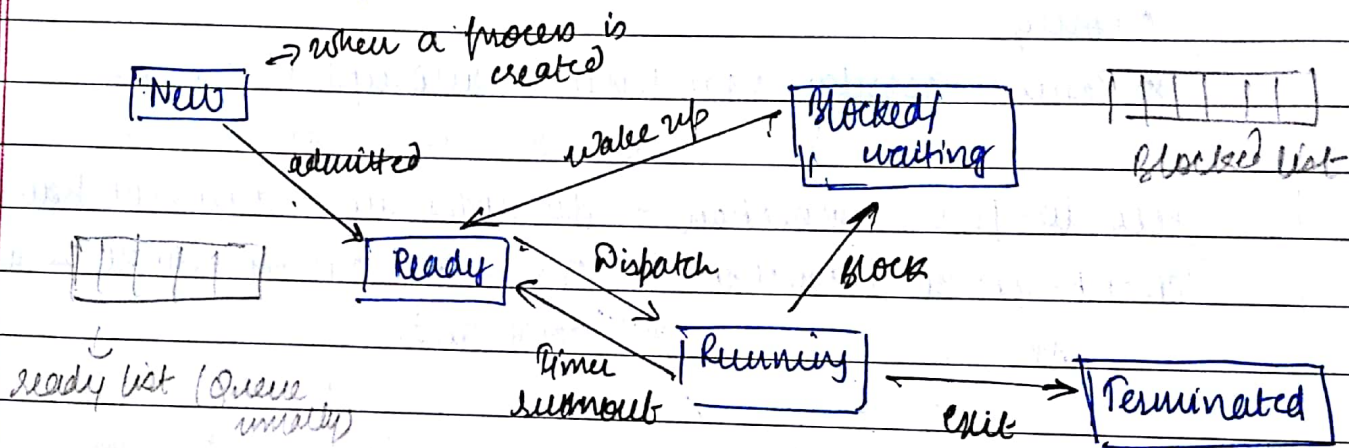 → when a process is
created
New
admitted
Wake up
Blocked/
waiting
Blocked list
Ready
Dispatch
Block
Timer
runout
Running
exit
Terminated
ready list (Queue
usually)